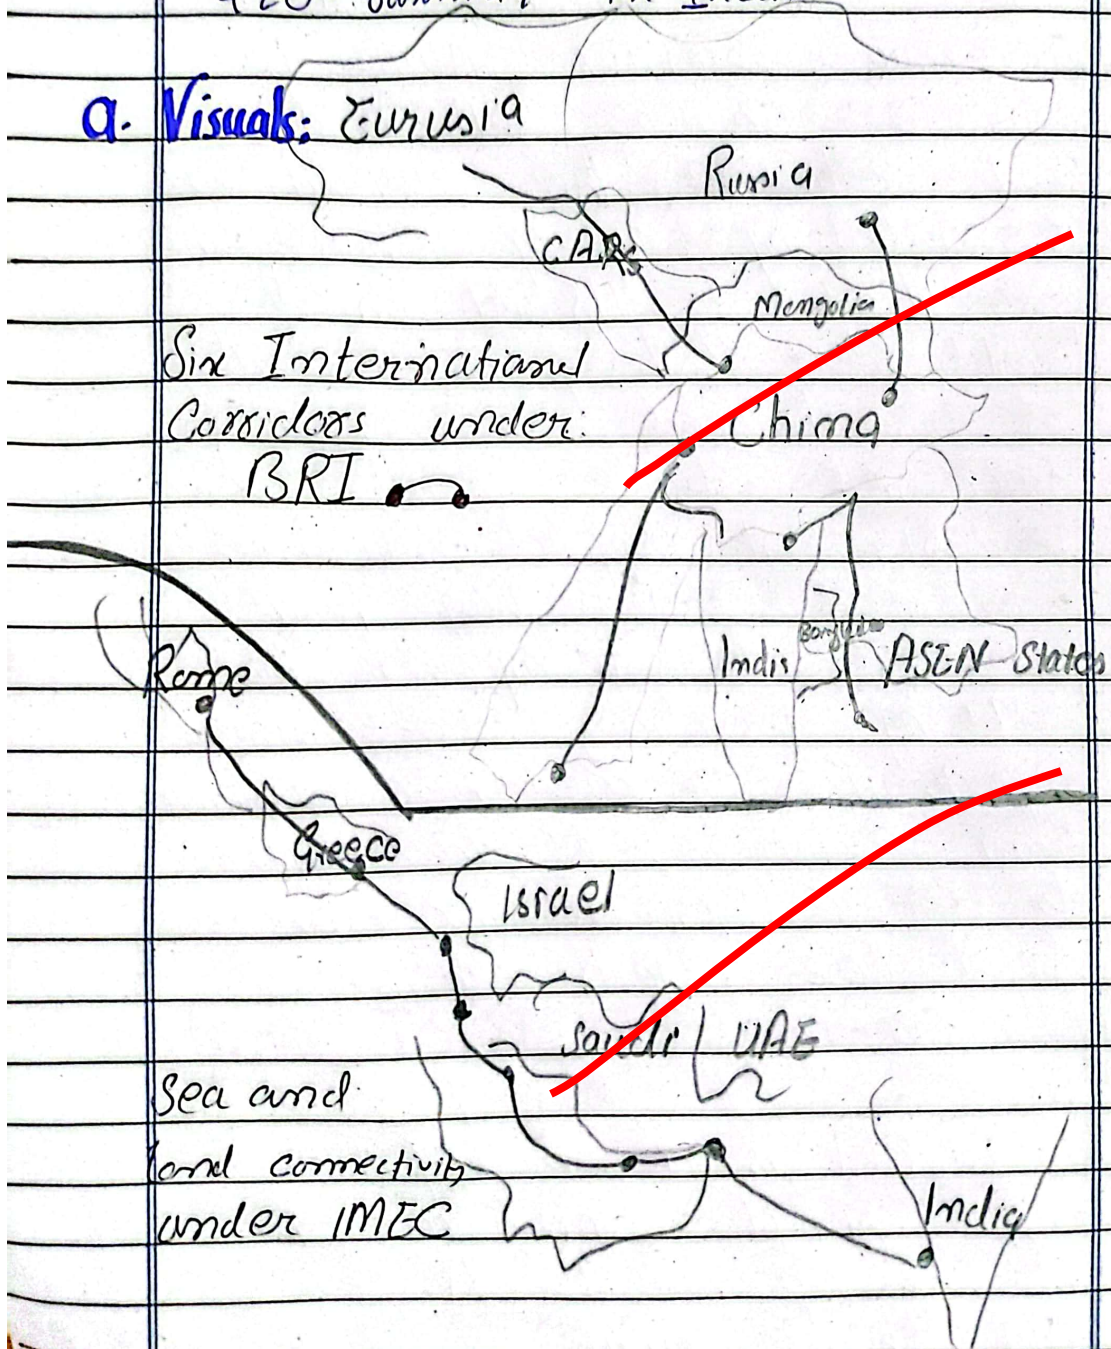 a. Visuals: Eurusia
Russia
CARs
Mongolia
Six International
Corridors under:
China
BRI
Indis
ASEN States
Rome
Greece
Israel
Saudi
UAE
Sea and
land connectivity
under IMEC
India